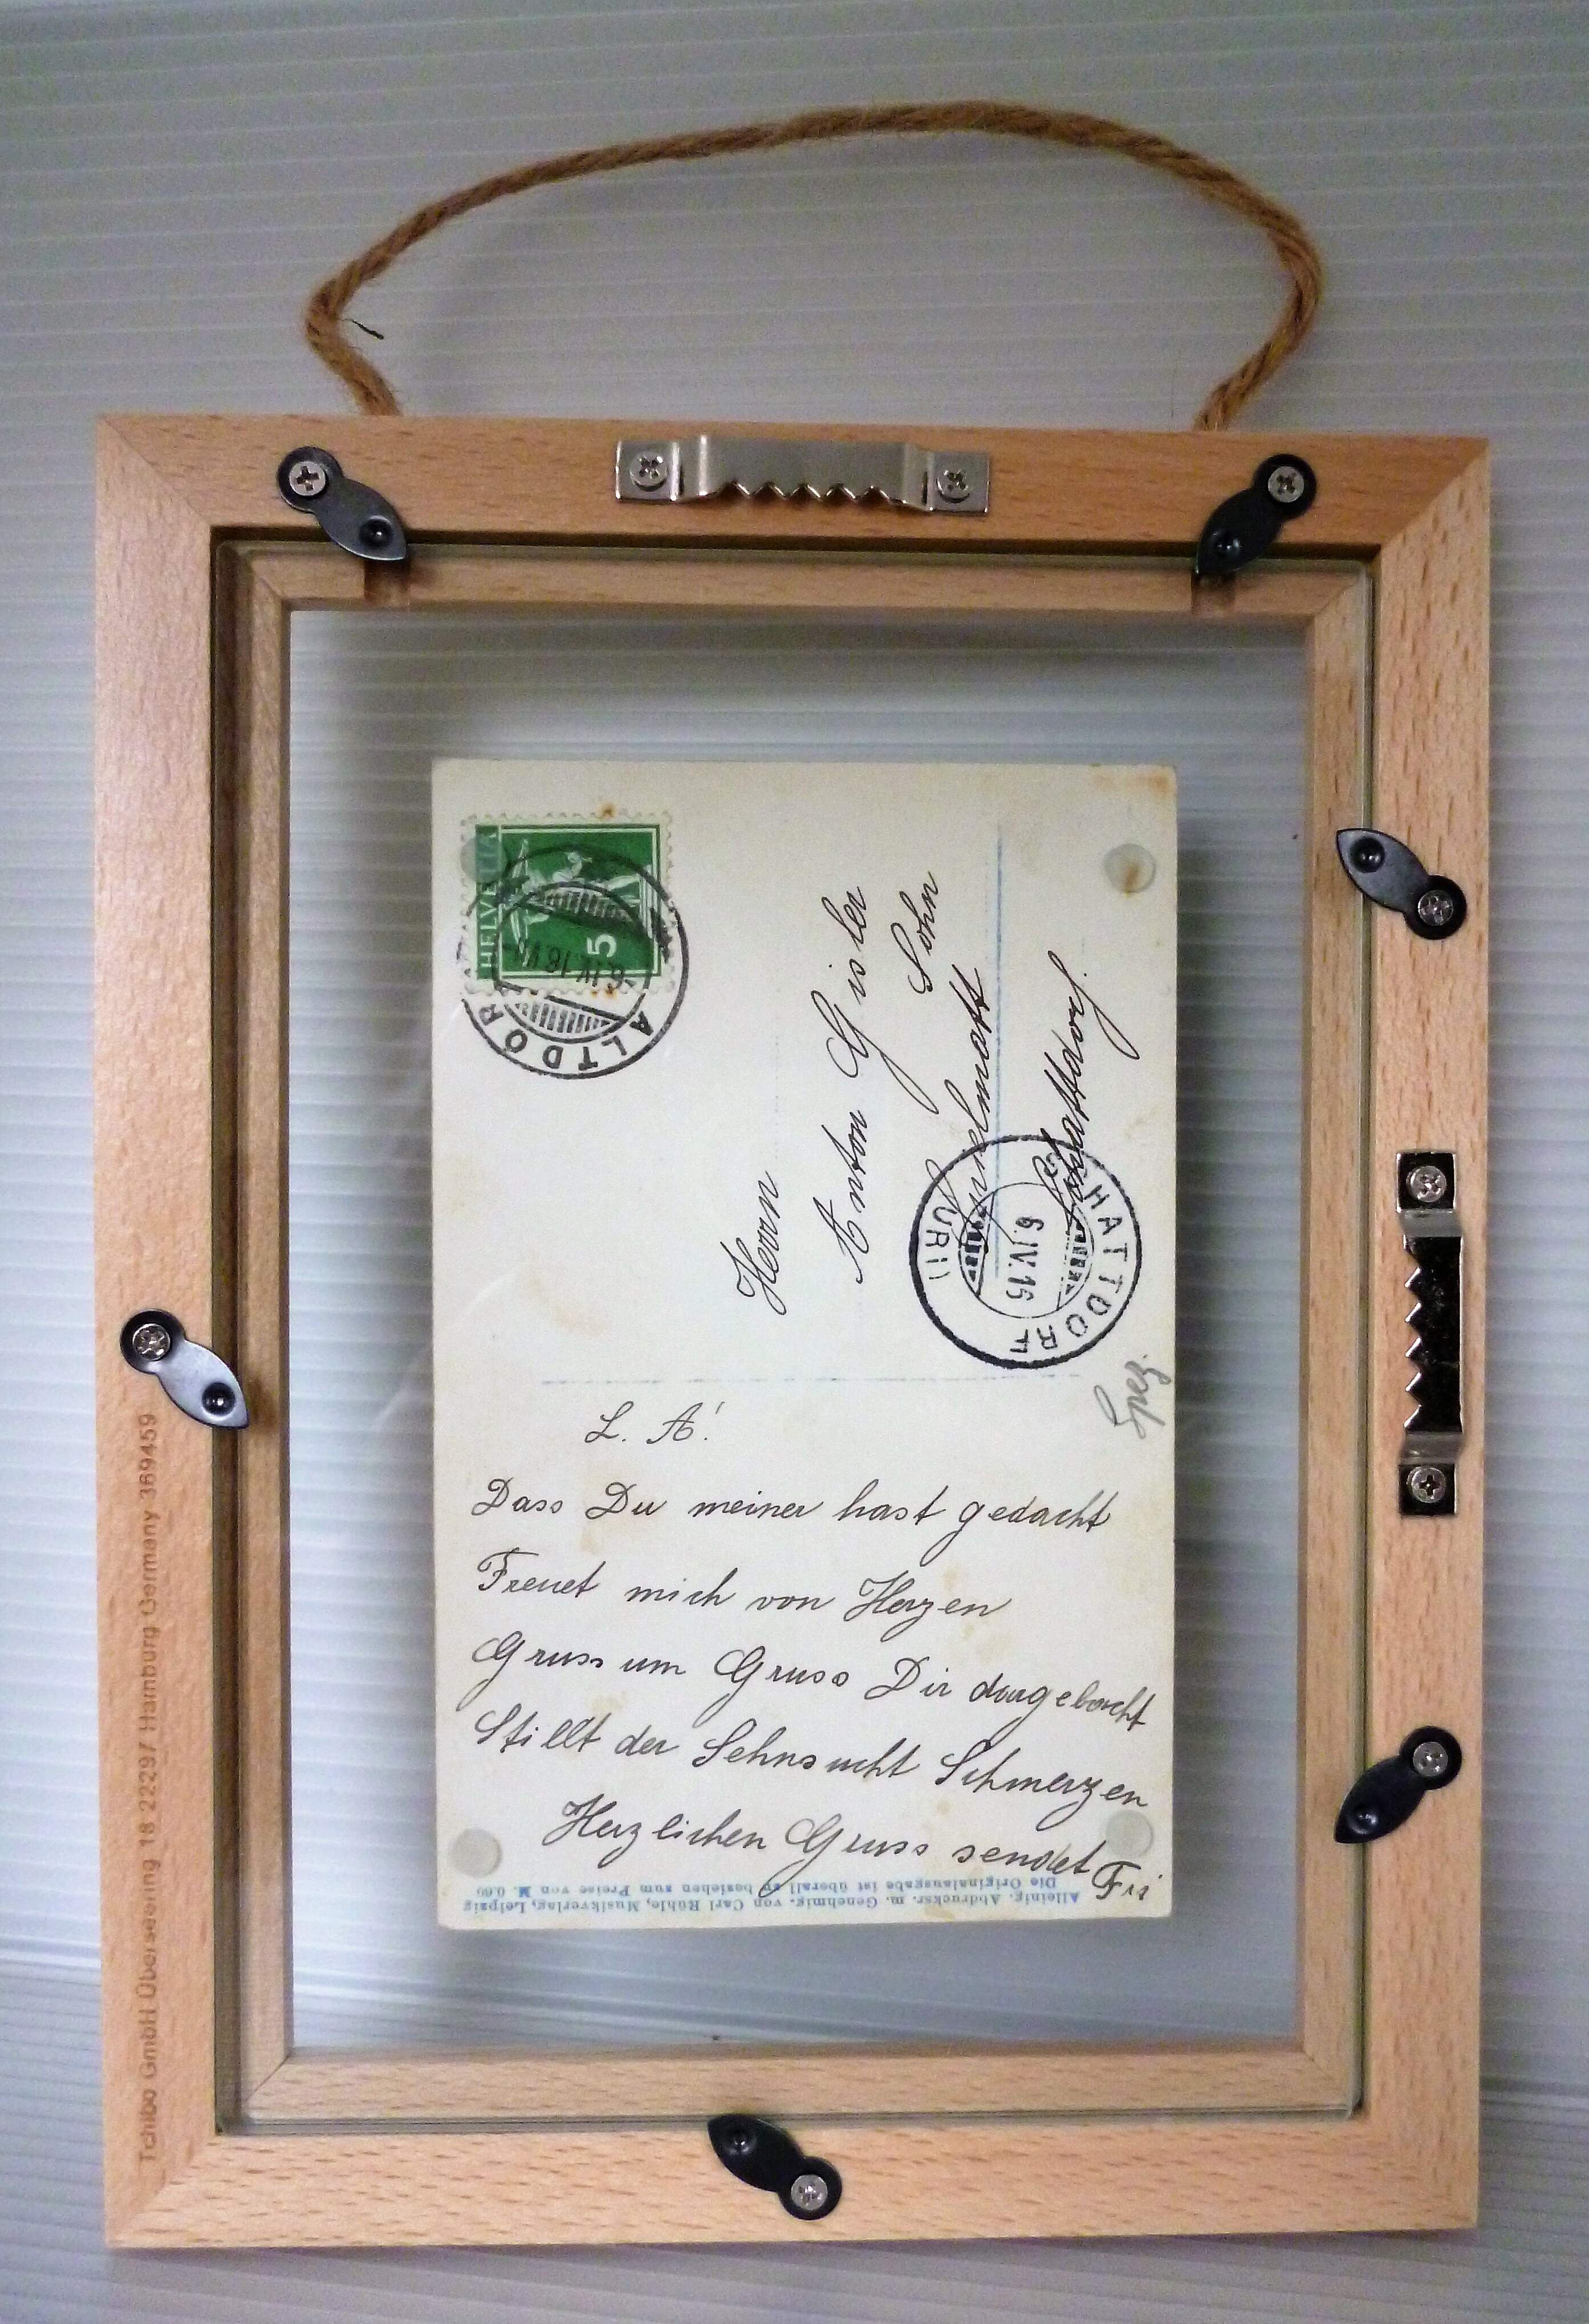 HELVETIA
5
ALTDORF
-6.IV.16.VI
Herrn
Anton Gisler
Sohn
Schattdorf.
SCHATTDORF
6.IV.16
(URI)
Spez.
L. A!
Dass Du meiner hast gedacht
Freuet mich von Herzen
Gruss um Gruss Dir dargebracht
Stillt der Sehnsucht Schmerzen
Herzlichen Gruss sendet Fri
Alleinig. Abdrucksr. m. Genehmig. von Carl Rühle, Musikverlag, Leipzig
Die Originalausgabe ist überall zu beziehen zum Preise von M. 0.60
Tchibo GmbH Überseering 18 22297 Hamburg Germany 369459